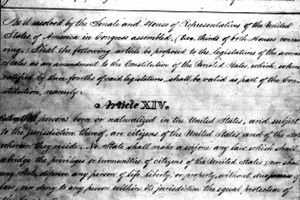 Be it resolved by the Senate and House of Representatives of the United
States of America in Congress assembled, (two thirds of both Houses concur
ring,) That the following article be proposed to the legislatures of the several
States as an amendment to the Constitution of the United States, which, when
ratified by three fourths of said legislatures, shall be valid as part of the Con
stitution, namely:
Article XIV.
persons born or naturalized in the United States, and subject
to the jurisdiction thereof, are citizens of the United States and of the State
wherein they reside. No State shall make or enforce any law which shall
abridge the privileges or immunities of citizens of the United States; nor shall
any State deprive any person of life, liberty, or property, without due process of
law, nor deny to any person within its jurisdiction the equal protection of